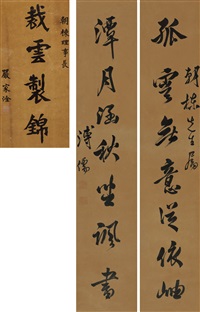 朝棟先生屬
孤雲無意從依岫
潭月涵秋坐諷書
溥儒
朝棟理事長
裁雲製錦
嚴家淦